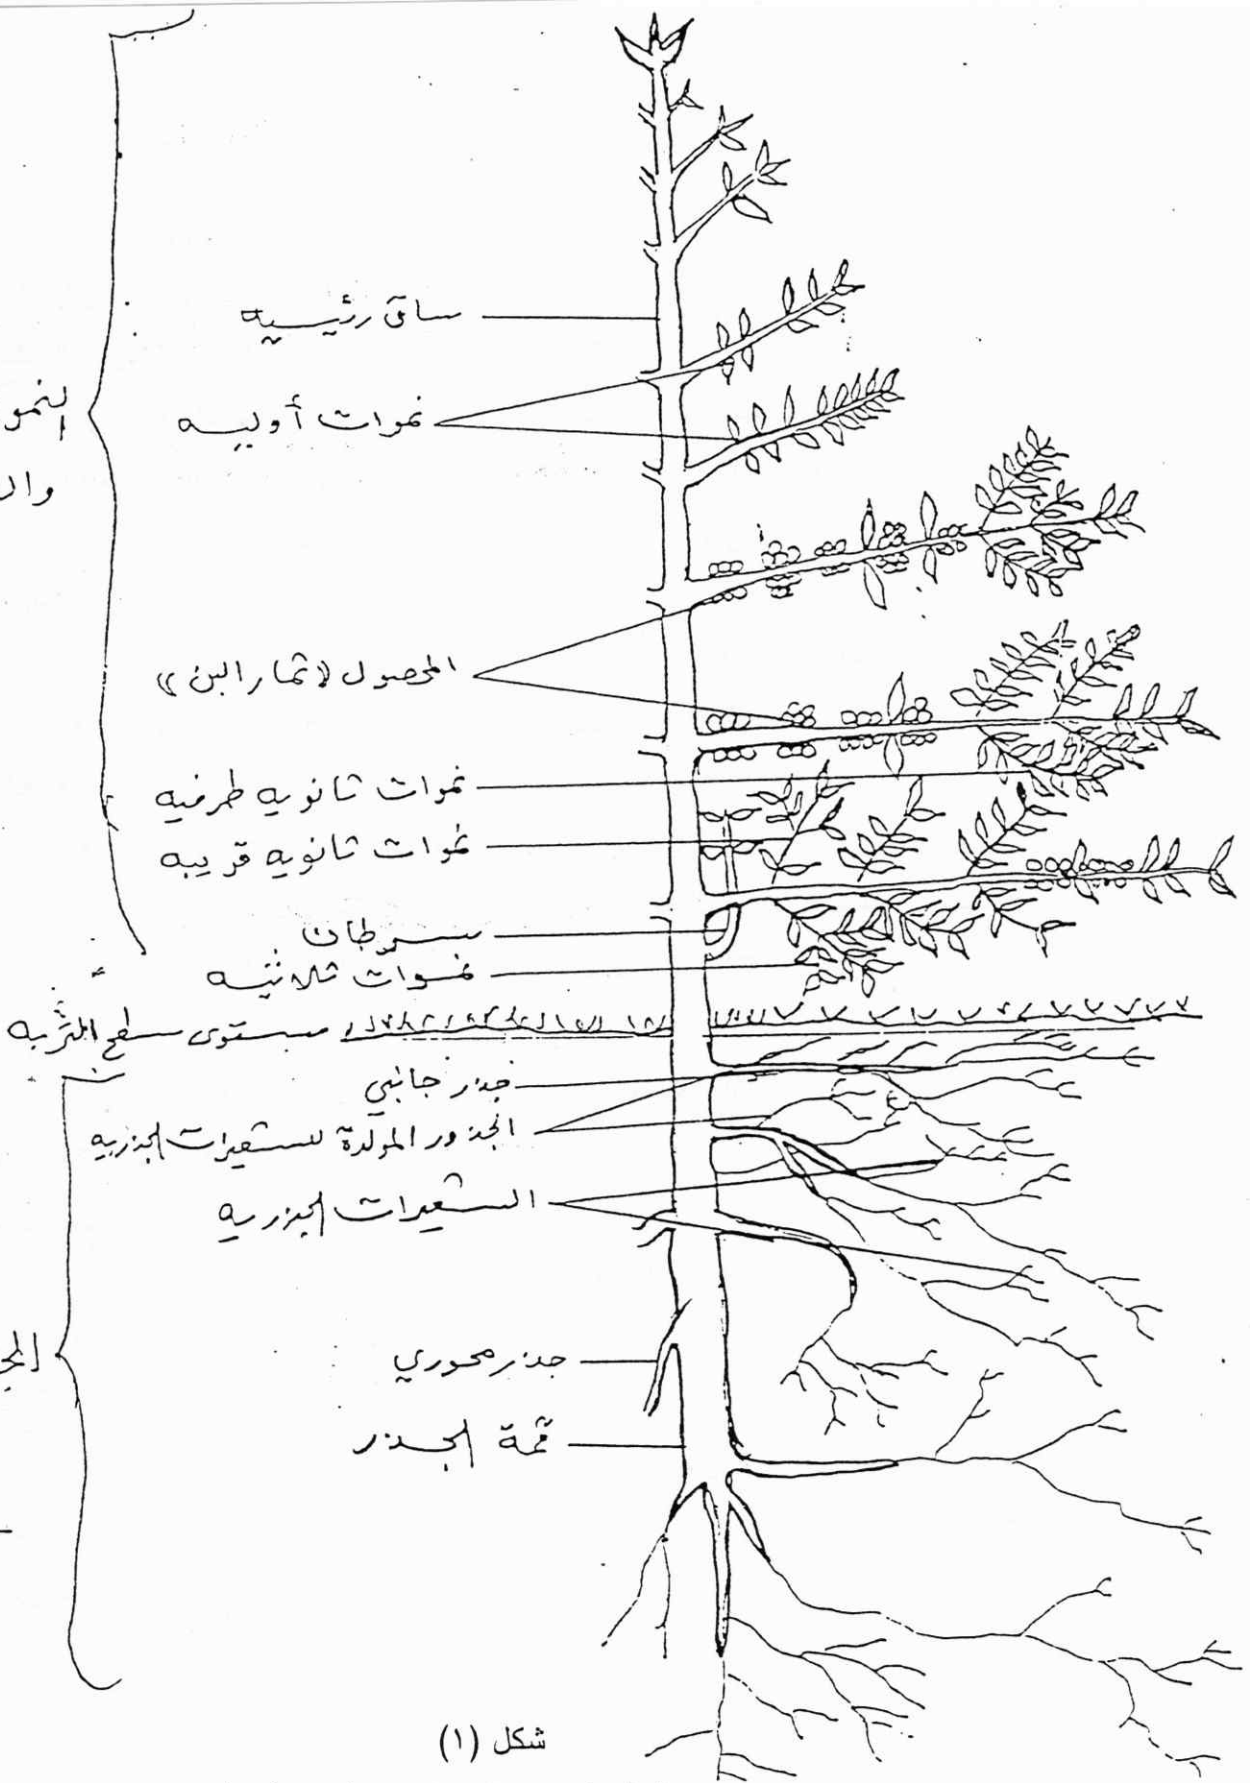 ساق رئيسيه
نموات أوليه
النمو
وال
المحصول «ثمار البن»
نموات ثانويه طرفيه
نموات ثانويه قريبه
سرطان
نموات ثلاثيه
مستوى سطح التربه
جذر جانبي
الجذور المولدة للشعيرات الجذريه
الشعيرات الجذريه
جذر محوري
قمة الجذر
شكل (١)